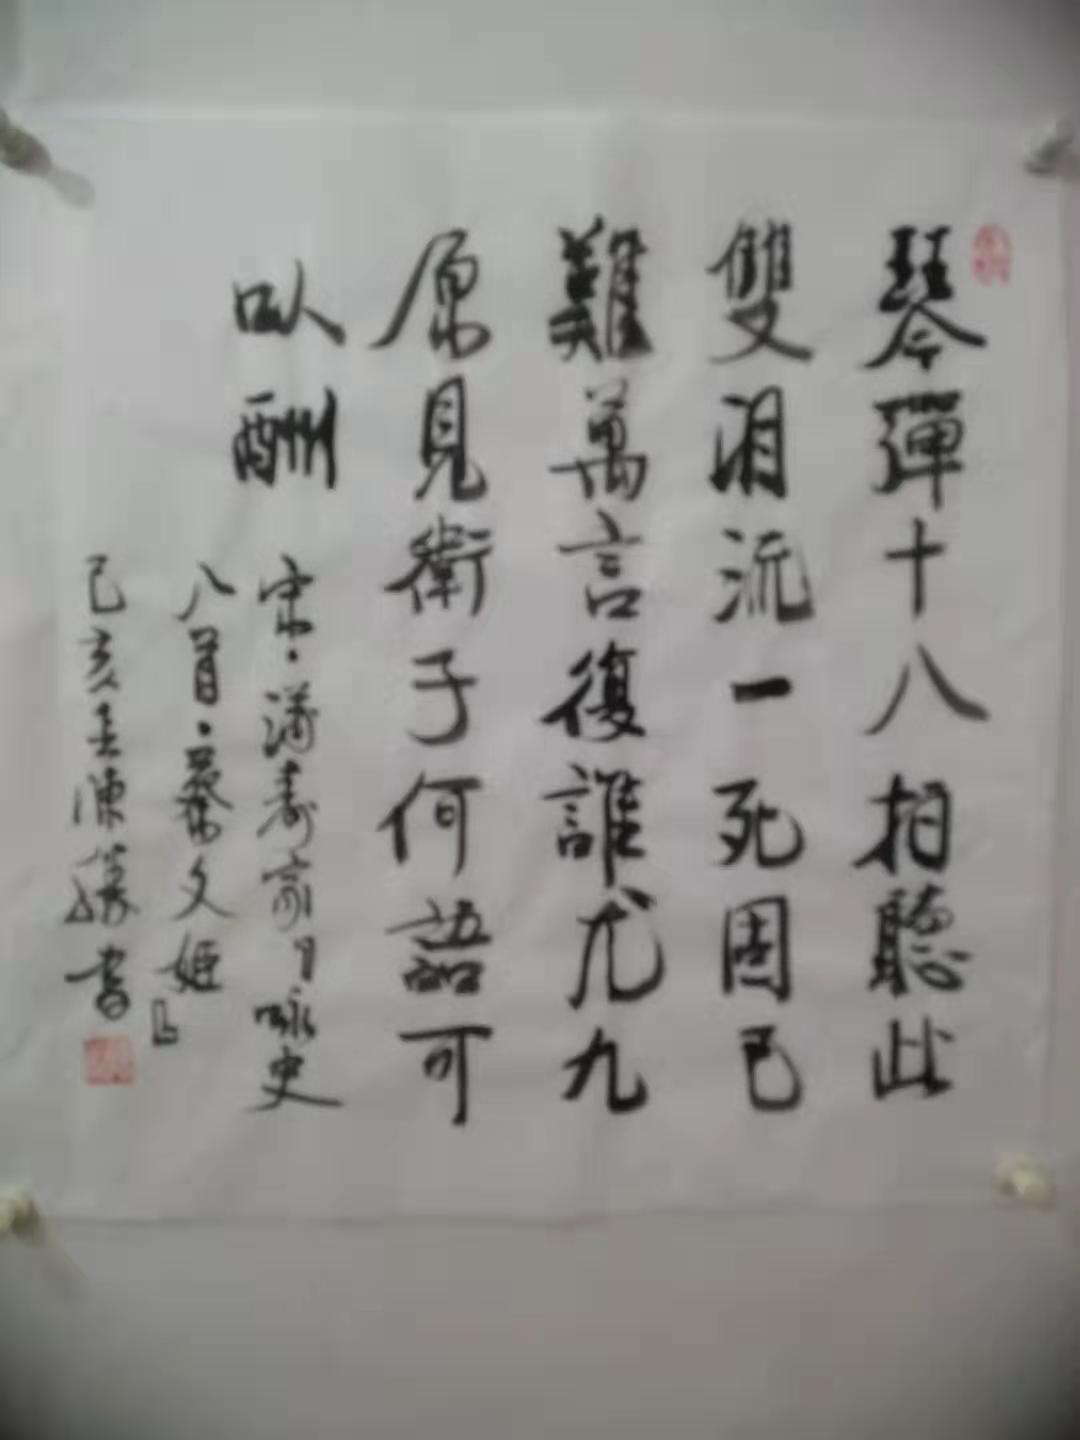 琴彈十八拍聽此
雙淚流一死固已
難萬言復誰尤九
原見衛子何語可
㕥酬
宋·蒲壽宬「咏史
八首·蔡文姬」
己亥冬陳勝書